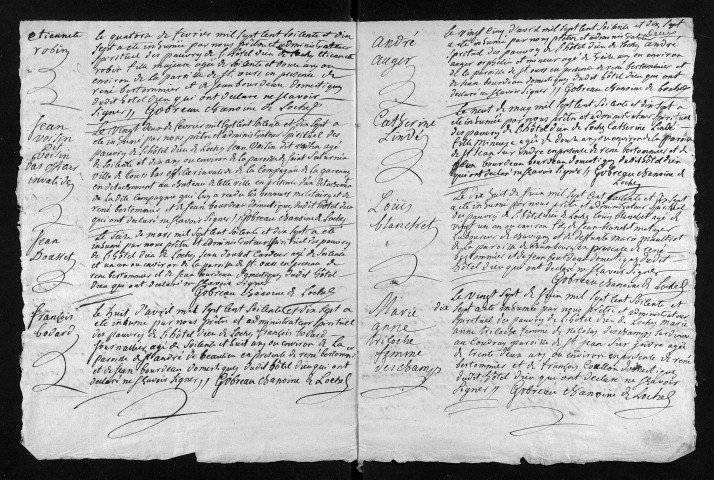 etiennette
robin
le quatorze de fevrier mil sept cent soixante et dix
sept a ete inhumée par nous prêtre et administrateur
spirituel des pauvres de l'hôtel dieu de Loches etiennette
robin fille majeure agée de soixante et douze ans ou
environ de la paroisse de st ours en presence de
rené bertommier et de jean bourdeau domestiques
dudit hôtel dieu qui ont declaré ne sçavoir
signer // Gobreau chanoine de Loches
Jean
voisin
Dit
voisin
bas officier
invalide
Le vingt deux de fevrier mil sept cent soixante et dix sept a
ete inhumé par nous prêtre et administrateur spirituel des
pauvres de L'hôtel dieu de Loches Jean voisin dit voisin agé
de soixante et dix ans ou environ de la paroisse de saint saturnin
ville de tours bas officier invalide de la Compagnie de la garenne
en detachement au chateau de cette ville en presence d'un detachement
de la dite compagnie qui luy a rendu les honneurs militaires et de
rené bertommier et de Jean bourdeau domestiques dudit hôtel dieu
qui ont declaré ne sçavoir signer // Gobreau chanoine de Loches
Jean
Dousset
Le seize de mars mil sept cent soixante et dix sept a ete
inhumé par nous prêtre et administrateur spirituel des pauvres
de L'hôtel dieu de Loches Jean doublet cardeur agé de soixante
et un an ou environ de la paroisse de st ours en presence de
rené bertommier et de jean bourdeau domestiques dudit hôtel
dieu qui ont declaré ne sçavoir signer
Gobreau chanoine de Loches
françois
bodard
le huit d'avril mil sept cent soixante et dix sept a
ete inhumé par nous prêtre et administrateur spirituel
des pauvres de L'hôtel dieu de Loches françois bodard
journallier agé de soixante et huit ans ou environ de la
paroisse de st andré de beaulieu en presence de rené bertommier
et de jean bourdeau domestiques dudit hôtel dieu qui ont
declaré ne sçavoir signer // Gobreau chanoine de Loches
andré
auger
le vingt cinq d'avril mil sept cent soixante et dix sept
a ete inhumé par nous prêtre et administrateur
spirituel des pauvres de l'hôtel dieu de Loches, andré
auger orphelin et mineur agé de seize ans ou environ
de la paroisse de st ours en presence de rené bertommier et
de Jean bourdeau domestiques dudit hôtel dieu qui ont
declaré ne sçavoir signer // Gobreau chanoine de Loches
Catherine
Lindé
Le neuf de may mil sept cent soixante et dix sept a
ete inhumée par nous prêtre et administrateur spirituel
des pauvres de L'hôtel dieu de Loches Catherine Lindé
fille mineure agée de douze ans ou environ de la paroisse
de st Jean sur Indre en presence de rené bertommier et de
jean bourdeau domestiques dudit hôtel dieu
qui ont declaré ne sçavoir signer // Gobreau chanoine de
Loches
Louis
blanchet
Le dix huit de juin mil sept cent soixante et dix sept
a ete inhumé par nous prêtre et administrateur spirituel
des pauvres de L'hôtel dieu de Loches Louis blanchet agé de
vingt un an ou environ fils de jean blanchet metayer
de la paroisse de en presence de rené
bertommier et de jean bourdeau domestiques dudit hôtel
dieu qui ont declaré ne sçavoir signer
Gobreau chanoine de Loches
Marie
anne
triloche
femme
deschamps
Le vingt sept de juin mil sept cent soixante et
dix sept a ete inhumée par nous prêtre et administrateur
spirituel des pauvres de L'hôtel dieu de Loches marie
anne triloche femme de nicolas deschamps
au coudray paroisse de st jean sur Indre agée
de trente deux ans ou environ en presence de rené
bertommier et de françois Coullon domestiques
dudit hôtel dieu qui ont declaré ne sçavoir
signer // Gobreau chanoine de Loches